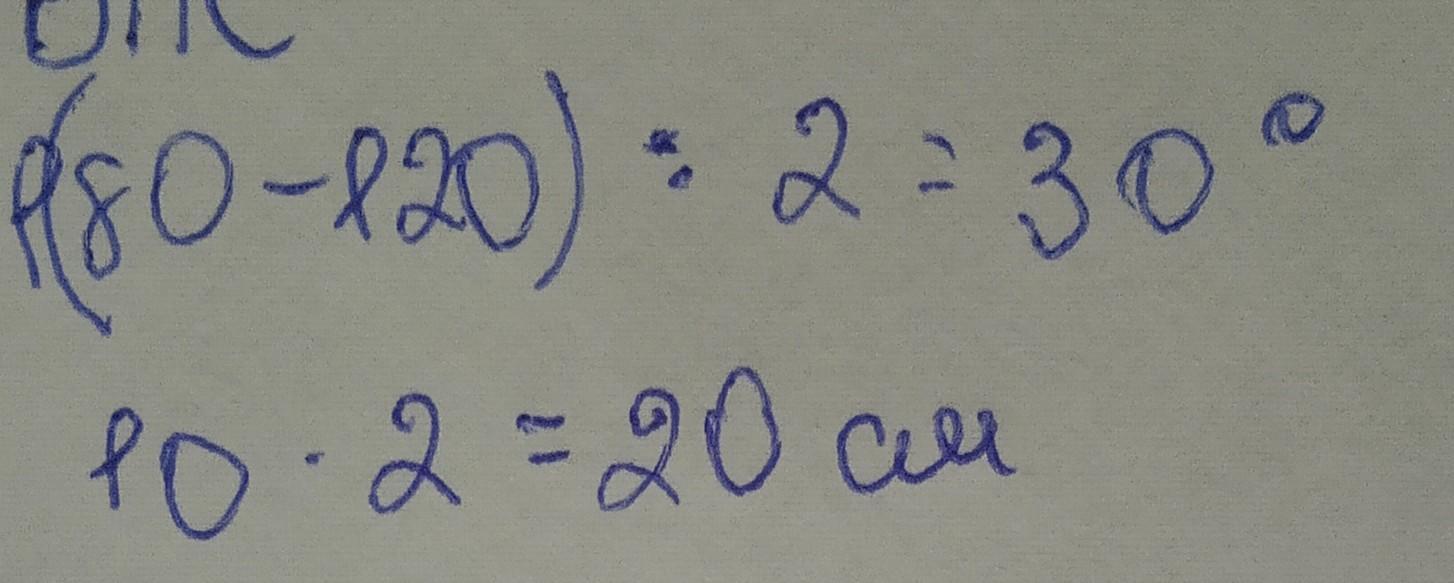 (180-120) : 2 = 30°
10 · 2 = 20 см